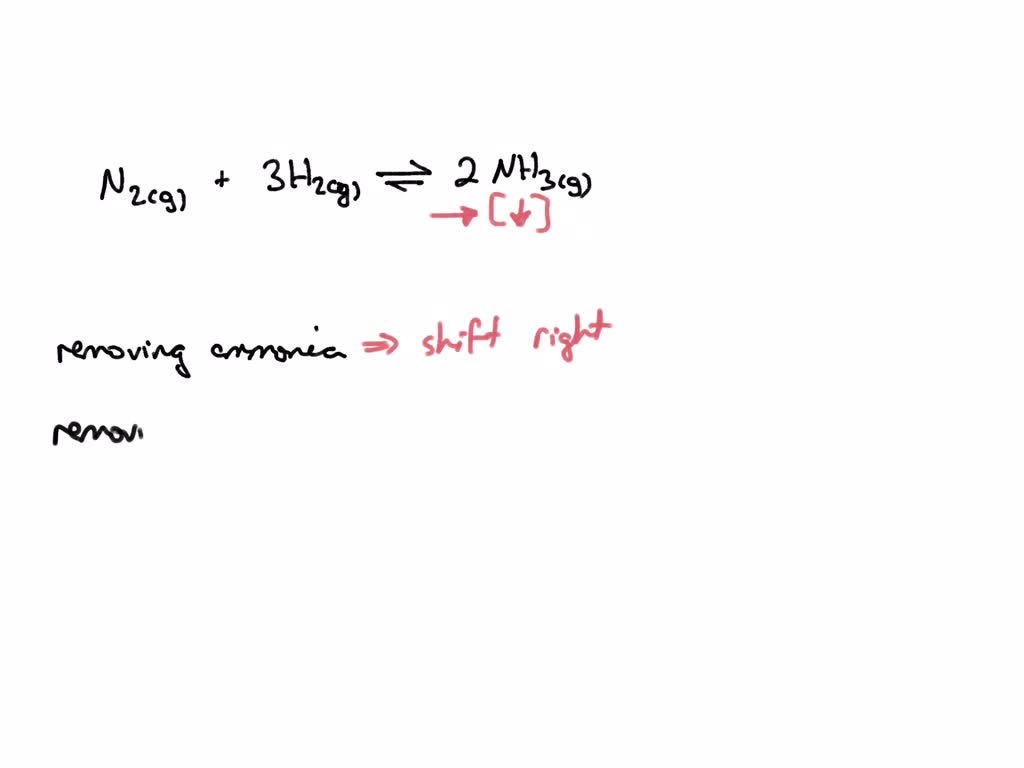 N₂(g) + 3H₂(g) ⇌ 2 NH₃(g)
→ [↓]
removing ammonia ⇒ shift right
removi